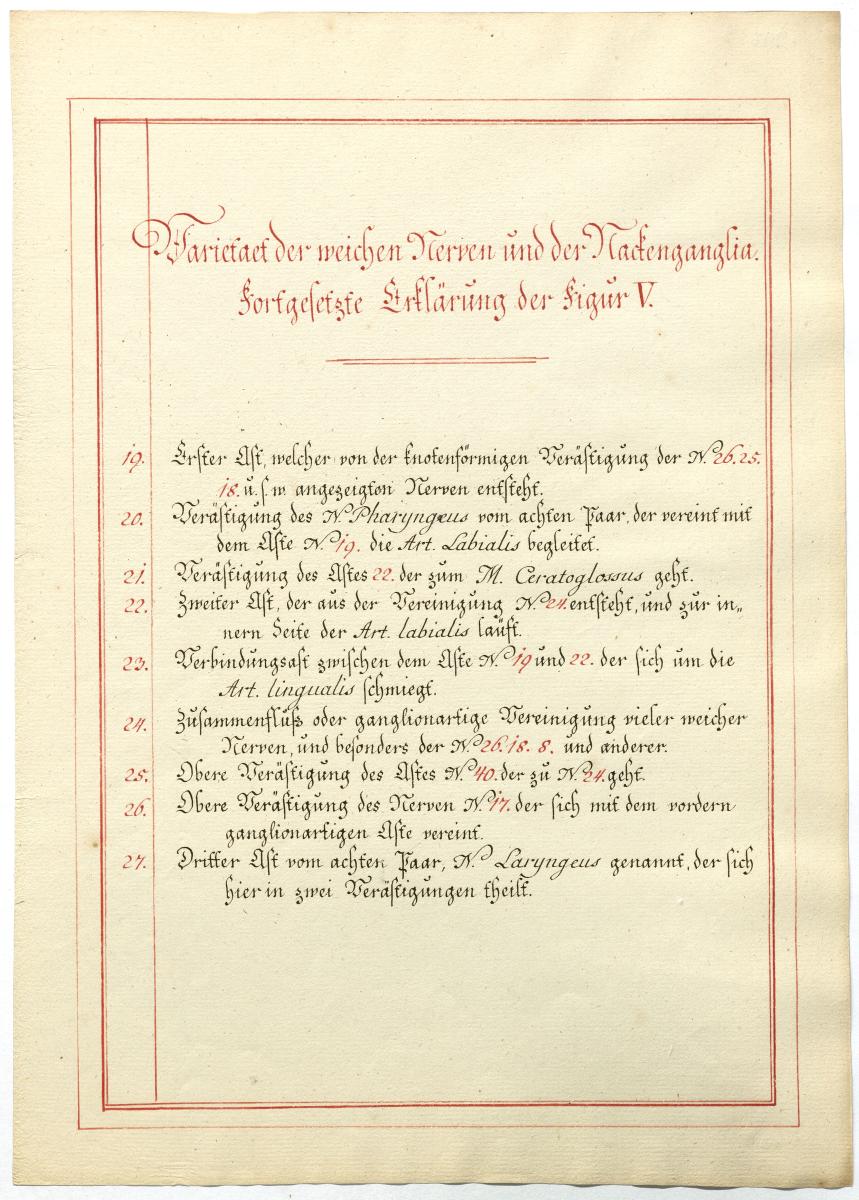 Varietaet der weichen Nerven und der Nackenganglia.
Fortgesetzte Erklärung der Figur V.
19. Erster Ast, welcher von der knotenförmigen Verästigung der N.º 26. 25.
18. u. s. w. angezeigten Nerven entsteht.
20. Verästigung des N.º Pharyngeus vom achten Paar, der vereint mit
dem Aste N.º 19. die Art. Labialis begleitet.
21. Verästigung des Astes 22. der zum M. Ceratoglossus geht.
22. Zweiter Ast, der aus der Vereinigung N.º 24. entsteht, und zur in„
nern Seite der Art. labialis läuft.
23. Verbindungsast zwischen dem Aste N.º 19 und 22. der sich um die
Art. lingualis schmiegt.
24. Zusammenfluß oder ganglionartige Vereinigung vieler weicher
Nerven, und besonders der N.º 26. 18. 8. und anderer.
25. Obere Verästigung des Astes N.º 40. der zu N.º 24. geht.
26. Obere Verästigung des Nerven N.º 17. der sich mit dem vordern
ganglionartigen Aste vereint.
27. Dritter Ast vom achten Paar, N.º Laryngeus genannt, der sich
hier in zwei Verästigungen theilt.